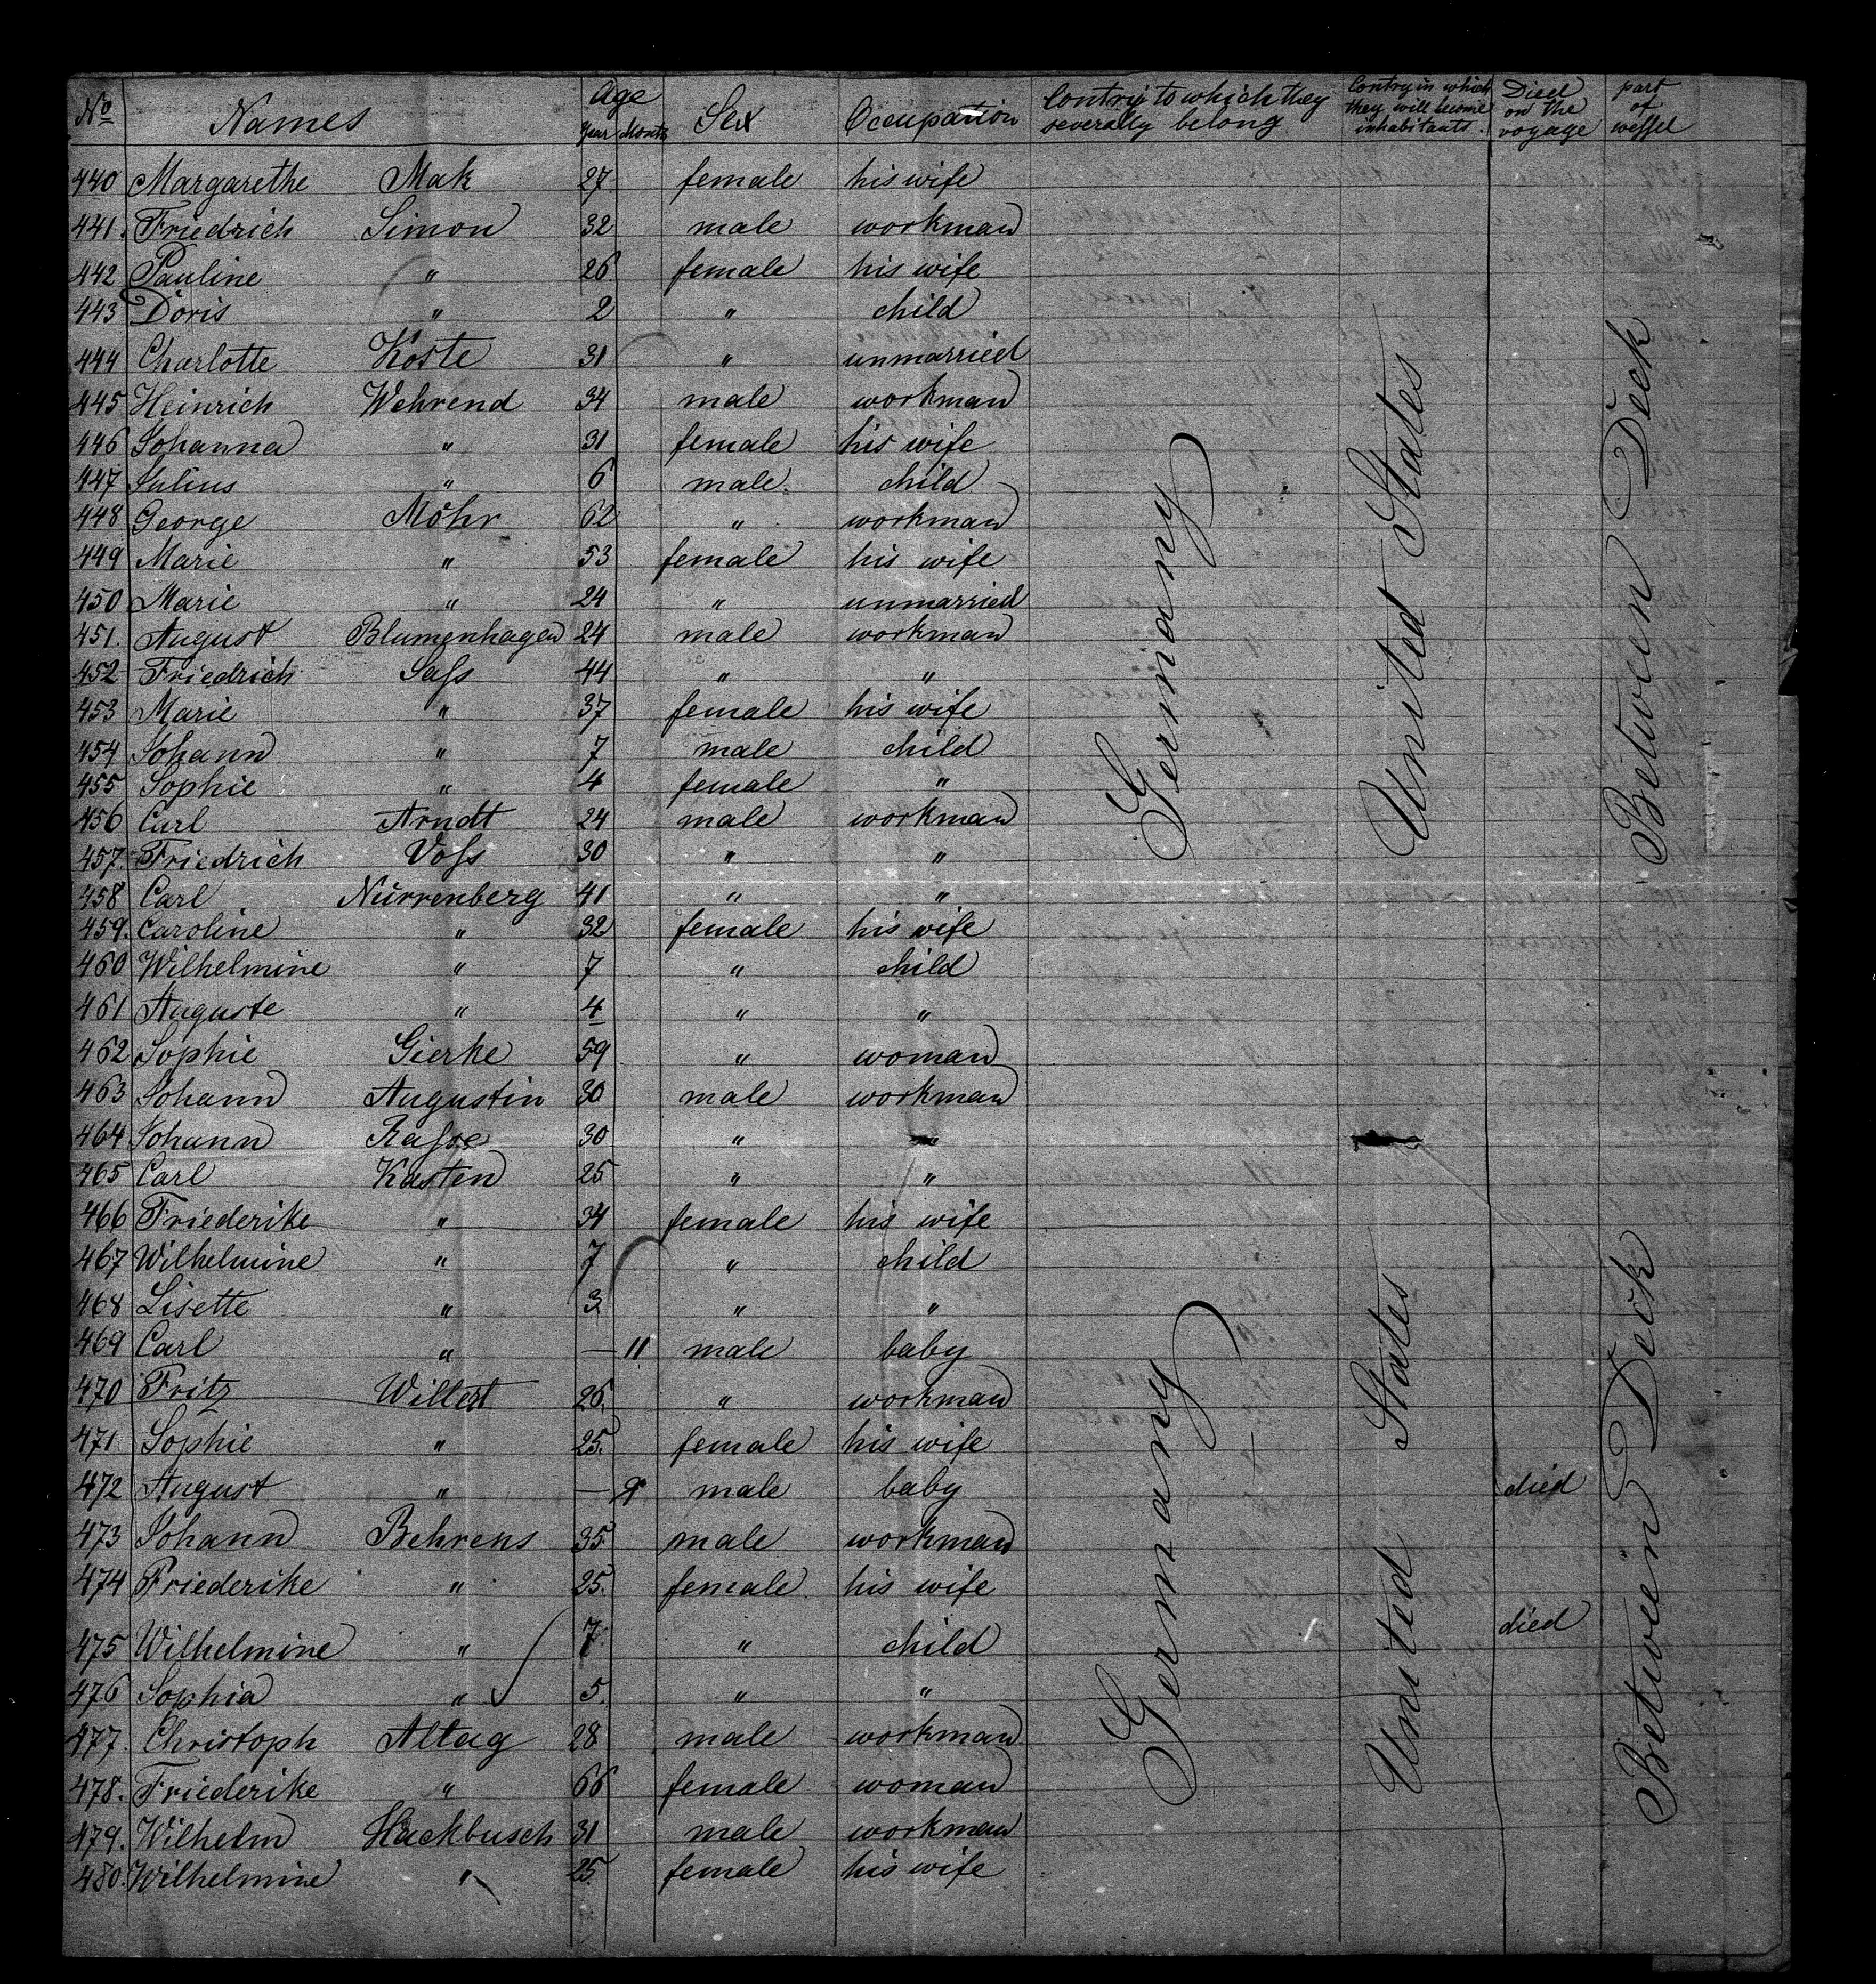 No Names Age Year Month Sex Occupation Contry to which they severally belong Contry in which they will become inhabitants. Died on the voyage part of wessel
440 Margarethe Mak 27 female his wife
441. Friedrich Simon 32 male workman
442 Pauline " 26 female his wife
443 Doris " 2 " child
444 Charlotte Koste 31 " unmarried
445 Heinrich Wehrend 34 male workman
446 Johanna " 31 female his wife
447 Julius " 6 male child
448 George Möhr 62 " workman
449 Marie " 53 female his wife
450 Marie " 24 " unmarried
451. August Blumenhagen 24 male workman
452 Friedrich Saſs 44 " "
453 Marie " 37 female his wife
454 Johann " 7 male child
455 Sophie " 4 female "
456 Carl Arndt 24 male workman
457. Friedrich Voſs 30 " "
458 Carl Nürrenberg 41 " "
459. Caroline " 32 female his wife
460 Wilhelmine " 7 " child
461 Auguste " 4 " "
462 Sophie Gierke 59 " woman
463 Johann Augustin 30 male workman
464 Johann Raſse 30 " "
465 Carl Kasten 25 " "
466 Friederike " 34 female his wife
467 Wilhelmine " 7 " child
468 Lisette " 3 " "
469 Carl " — 11 male baby
470 Fritz Willert 26. " workman
471 Sophie " 25. female his wife
472 August " — 9 male baby died
473 Johann Behrens 35 male workman
474 Friederike " 25. female his wife
475 Wilhelmine " 7 " child died
476 Sophia " 5. " "
477. Christoph Altag 28 male workman
478. Friederike " 66 female woman
479. Wilhelm Hackbusch 31 male workman
480. Wilhelmine " 25. female his wife
Germany
United States
Between Deck
Germany
United States
Between Deck